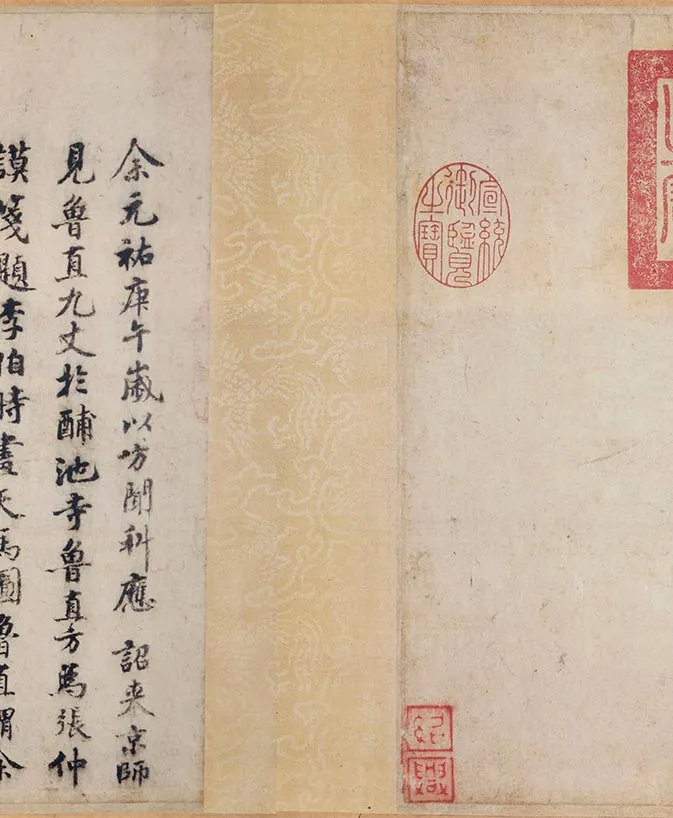 宣統
御覽
之寶
紹
興
余元祐庚午歲以方聞科應 詔来京師
見魯直九丈於酺池寺魯直方為張仲
謨箋題李伯時畫天馬圖魯直謂余